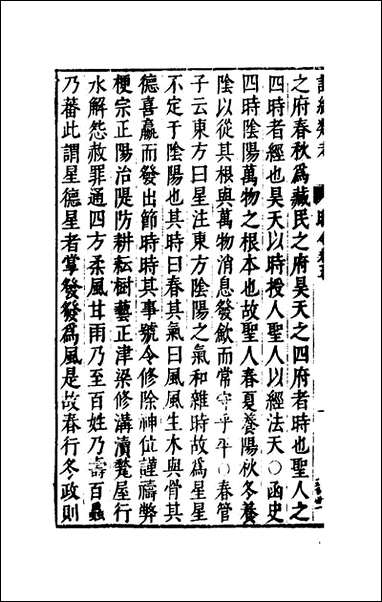 之府春秋為藏民之府昊天之四府者時也聖人之
四時者經也昊天以時授人聖人以經法天○函史
四時陰陽萬物之根本也故聖人春夏養陽秋冬養
陰以從其根與萬物消息發歛而常守乎平○春管
子云東方曰星注東方陰陽之氣和雜時故為星星
不定于陰陽也其時曰春其氣曰風風生木與骨其
德喜嬴而發出節時時其事號令修除神位謹禱弊
梗宗正陽治隄防耕耘樹藝正津梁修溝瀆甃屋行
水解怨赦罪通四方柔風甘雨乃至百姓乃壽百蟲
乃蕃此謂星德星者掌發發為風是故春行冬政則